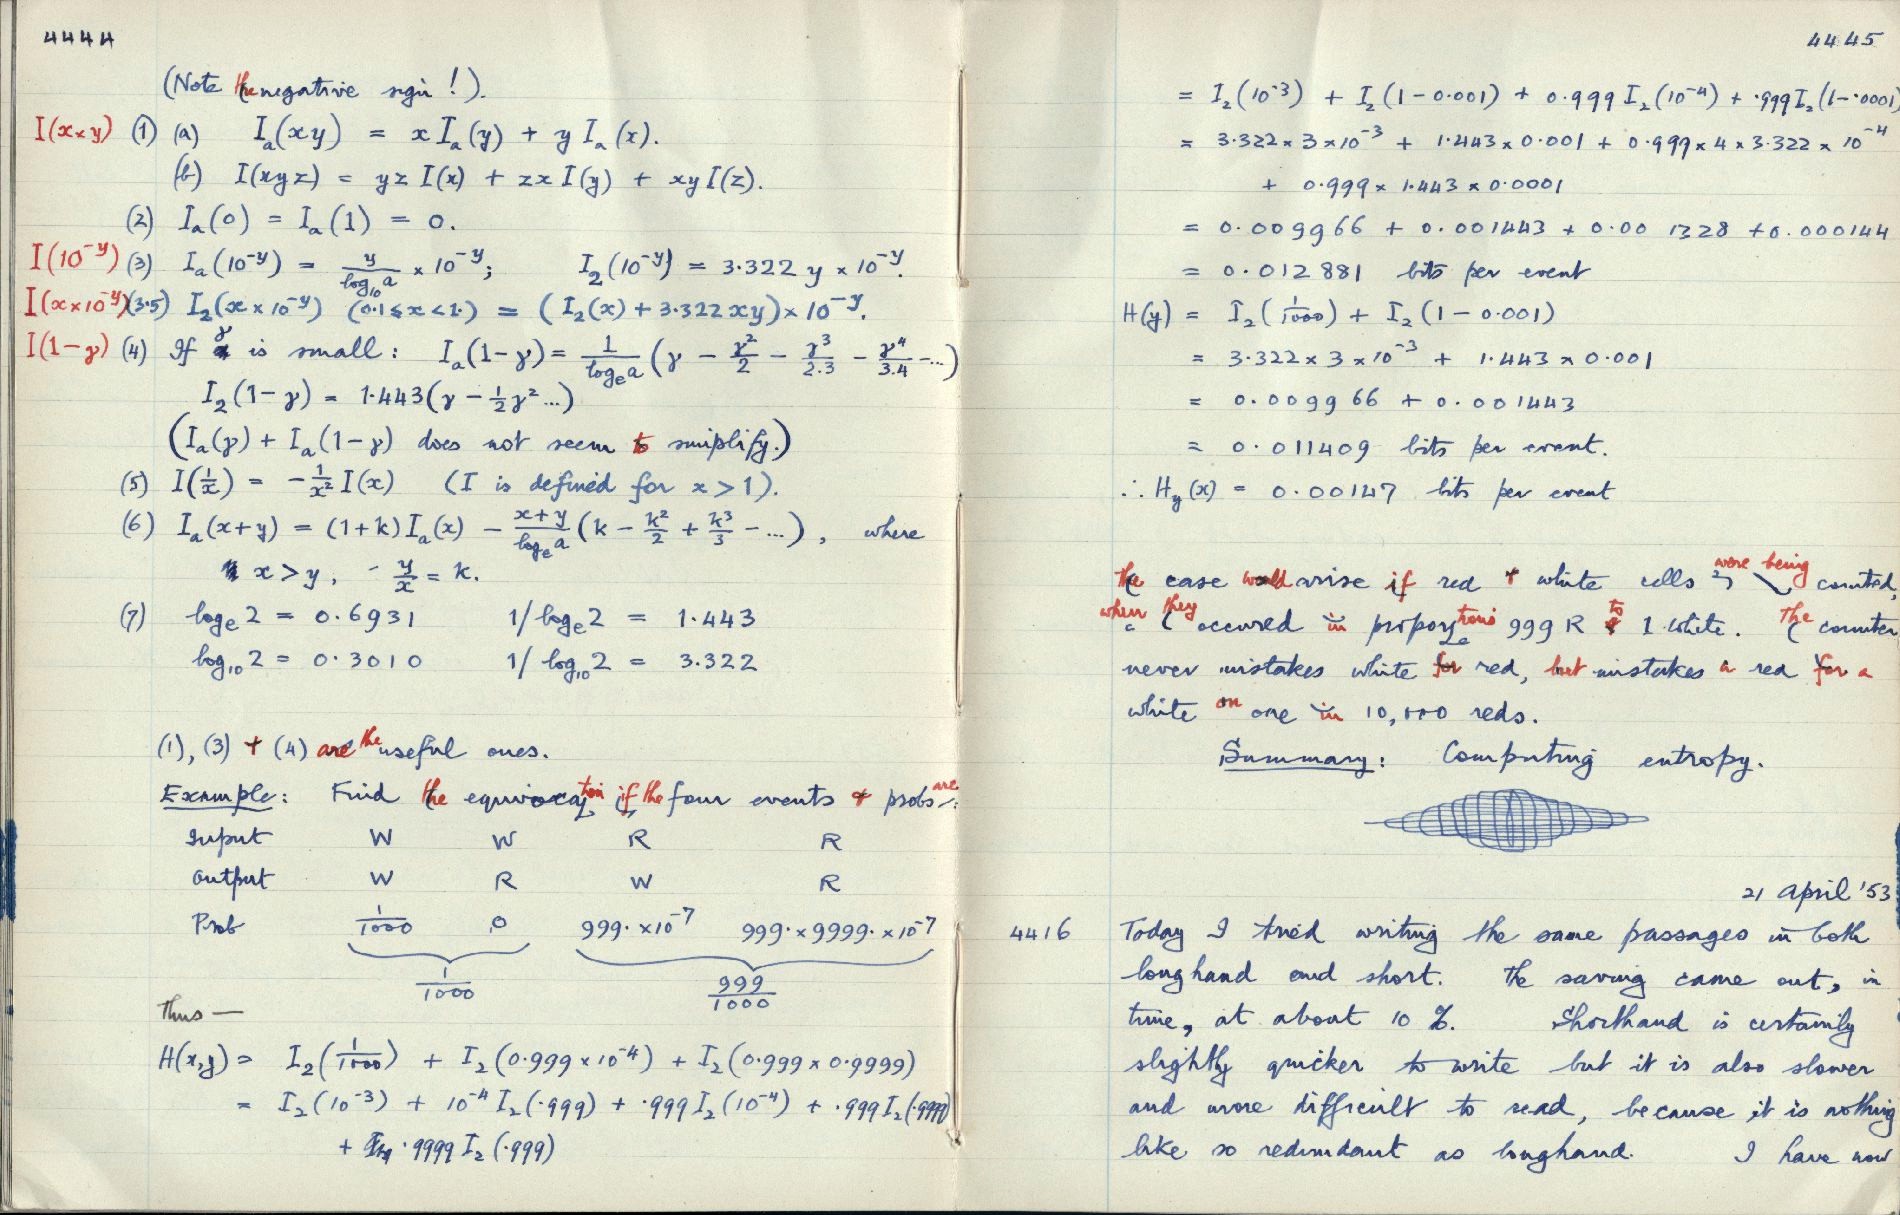 4444
(Note the negative sign!).
I(x×y) (1) (a) Iₐ(xy) = x Iₐ(y) + y Iₐ(x).
(b) I(xyz) = yz I(x) + zx I(y) + xy I(z).
(2) Iₐ(0) = Iₐ(1) = 0.
I(10⁻ʸ) (3) Iₐ(10⁻ʸ) = y/log₁₀a × 10⁻ʸ; I₂(10⁻ʸ) = 3·322 y × 10⁻ʸ.
I(x×10⁻ʸ) (3·5) I₂(x × 10⁻ʸ) (0·1 ≤ x < 1·) = (I₂(x) + 3·322 xy) × 10⁻ʸ.
I(1-γ) (4) If γ is small: Iₐ(1-γ) = 1/logₑa (γ - γ²/2 - γ³/2.3 - γ⁴/3.4 - ...)
I₂(1-γ) = 1·443(γ - ½γ² ...)
(Iₐ(γ) + Iₐ(1-γ) does not seem to simplify.)
(5) I(1/x) = - 1/x² I(x) (I is defined for x > 1).
(6) Iₐ(x+y) = (1+k) Iₐ(x) - x+y/logₑa (k - k²/2 + k³/3 - ...), where
x > y, y/x = k.
(7) logₑ2 = 0·6931 1/logₑ2 = 1·443
log₁₀2 = 0·3010 1/log₁₀2 = 3·322
(1), (3) + (4) are the useful ones.
Example: Find the equivocation if the four events + probs are:
Input W W R R
Output W R W R
Prob 1/1000 0 999·×10⁻⁷ 999·×9999·×10⁻⁷
1/1000 999/1000
Thus —
H(x,y) = I₂(1/1000) + I₂(0·999 × 10⁻⁴) + I₂(0·999 × 0·9999)
= I₂(10⁻³) + 10⁻⁴ I₂(·999) + ·999 I₂(10⁻⁴) + ·999 I₂(·9999)
+ ·9999 I₂(·999)
4445
= I₂(10⁻³) + I₂(1-0·001) + 0·999 I₂(10⁻⁴) + ·999 I₂(1-·0001)
= 3·322 × 3 × 10⁻³ + 1·443 × 0·001 + 0·999 × 4 × 3·322 × 10⁻⁴
+ 0·999 × 1·443 × 0·0001
= 0·009966 + 0·001443 + 0·001328 + 0·000144
= 0·012881 bits per event
H(y) = I₂(1/1000) + I₂(1-0·001)
= 3·322 × 3 × 10⁻³ + 1·443 × 0·001
= 0·009966 + 0·001443
= 0·011409 bits per event.
∴ Hy(x) = 0·00147 bits per event
The case would arise if red + white cells were being counted,
when they occured in proportions 999 R to 1 white. The counter
never mistakes white for red, but mistakes a red for a
white on one in 10,000 reds.
Summary: Computing entropy.
21 April '53
4416 Today I tried writing the same passages in both
longhand and short. The saving came out, in
time, at about 10 %. Shorthand is certainly
slightly quicker to write but it is also slower
and more difficult to read, because it is nothing
like so redundant as longhand. I have now